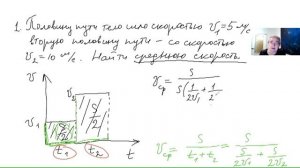 1. Половину пути тело шло скоростью V₁=5 м/с
вторую половину пути – со скоростью
V₂=10 м/с. Найти среднюю скорость
v
V₂
V₁
S/2
S/2
t₁ t₂ t
Vср = S / S(1/2V₁ + 1/2
Vср = S / t₁+t₂ = S / S/2V₁ + S/2V₂